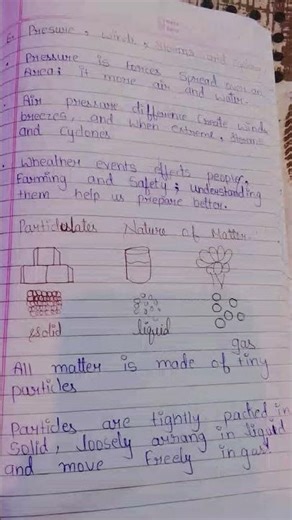 6. Pressure, Winds, Storms and
• Pressure is forces Spread over an
Area; it more air and water.
• Air pressure difference Create winds
breezes, and when extreme, Storms
and Cyclones
• Wheather events effects people,
Farming and Safety; understanding
them help us prepare better.
Particulates Nature of Matter.
Solid liquid gas
All matter is made of tiny
particles
Particles are tightly packed in
Solid, loosely arrang in liquid
and move Freely in gas